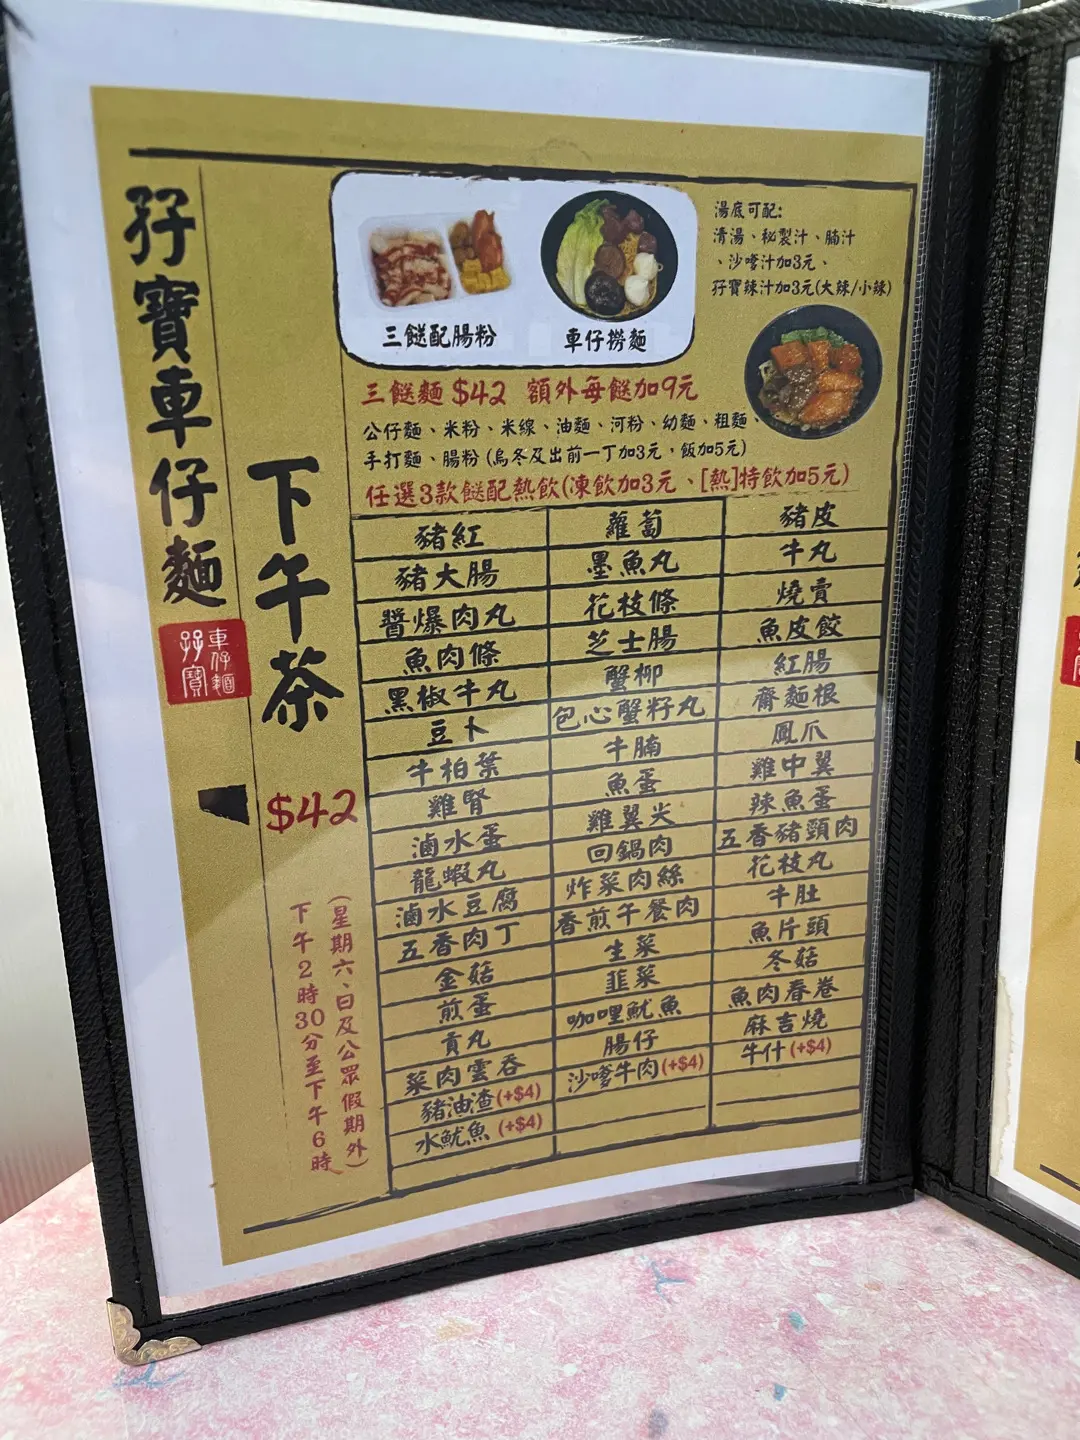 孖寶車仔麵
車仔麵
孖寶
下午茶
$42
(星期六、日及公眾假期外)
下午2時30分至下午6時
三餸配腸粉
車仔撈麵
湯底可配:
清湯、秘製汁、腩汁
、沙嗲汁加3元、
孖寶辣汁加3元(大辣/小辣)
三餸麵 $42 額外每餸加9元
公仔麵、米粉、米線、油麵、河粉、幼麵、粗麵、
手打麵、腸粉 (烏冬及出前一丁加3元，飯加5元)
任選3款餸配熱飲(凍飲加3元、[熱]特飲加5元)
豬紅
豬大腸
醬爆肉丸
魚肉條
黑椒牛丸
豆卜
牛柏葉
雞腎
滷水蛋
龍蝦丸
滷水豆腐
五香肉丁
金菇
煎蛋
貢丸
菜肉雲吞
豬油渣(+$4)
水魷魚 (+$4)
蘿蔔
墨魚丸
花枝條
芝士腸
蟹柳
包心蟹籽丸
牛腩
魚蛋
雞翼尖
回鍋肉
炸菜肉絲
香煎午餐肉
生菜
韮菜
咖哩魷魚
腸仔
沙嗲牛肉(+$4)
豬皮
牛丸
燒賣
魚皮餃
紅腸
齋麵根
鳳爪
雞中翼
辣魚蛋
五香豬頸肉
花枝丸
牛肚
魚片頭
冬菇
魚肉春卷
麻吉燒
牛什(+$4)